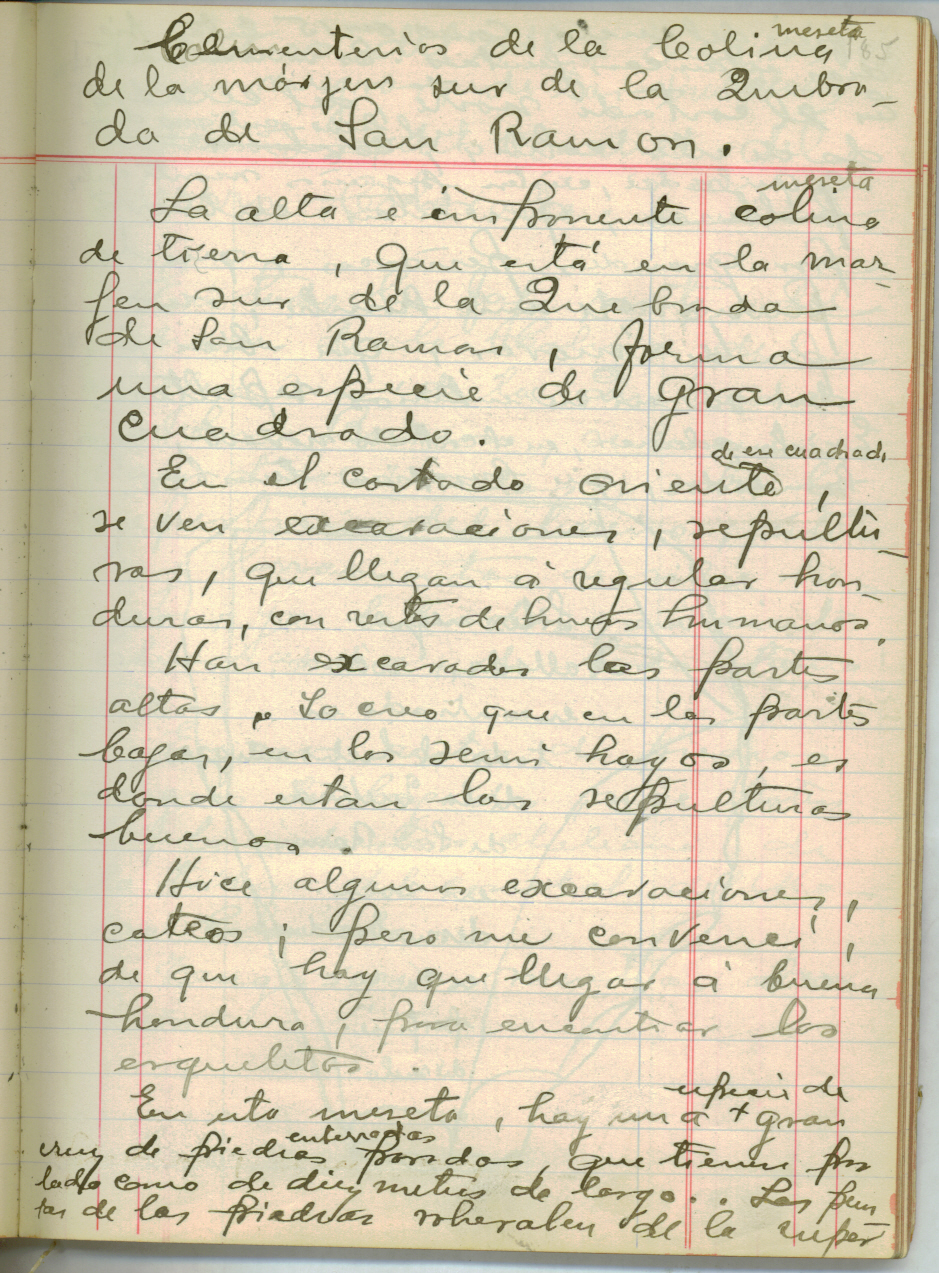 meseta 185
Cementerios de la Colina
de la márjen sur de la Quebra-
da de San Ramon.
meseta
La alta e imponente colina
de tierra, que está en la mar-
jen sur de la Quebrada
de San Ramon, forma
una especie de gran
cuadrado.
de ese cuadrado
En el costado oriente,
se ven excavaciones, sepultu-
ras, que llegan á regular hon-
duras, con restos de huesos humanos.
Han excavados las partes
altas. Yo creo que en las partes
bajas, en los semi hoyos, es
donde estan las sepulturas
buenas.
Hice algunas excavaciones,
cateos; pero me convencí,
de que hay que llegar á buena
hondura, para encontrar los
esqueletos.
especie de
En esta meseta, hay una + gran
enterradas
cruz de piedras paradas, que tienen por
lado como de diez metros de largo.. Las pun
tas de las piedras sobresalen de la super